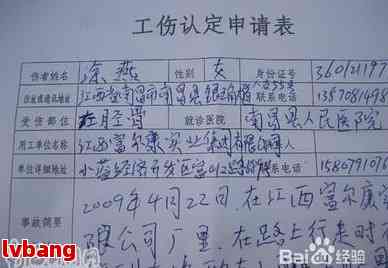 工伤认定申请表
伤者姓名 涂燕 性别 女 身份证号 360121197
住址或通讯地址 江西省南昌市南昌县 联系电话 1357081498
受伤部位 左胫骨 就诊医院 南昌县人民医院
用工单位名称 江西富尔康实业集团有限公司
单位详细地址 小蓝经济开发区富山 联系电话 15807910
事故简要 2009年4月22日，在江西富尔康实
限公司厂里，在路上行走时
lvbang
Bai 百度